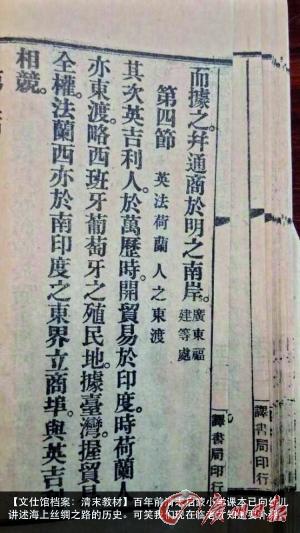 譯書局印行
譯書局印行
而據之。幷通商於明之南岸。廣東福建等處
第四節 英法荷蘭人之東渡
其次英吉利人。於萬歷時。開貿易於印度。時荷蘭人
亦東渡。略西班牙葡萄牙之殖民地。據臺灣。握貿
全權。法蘭西亦於南印度之東界立商埠。與英吉
相競。
【文仕馆档案：清末教材】百年前清末启蒙小学课本已向幼儿
讲述海上丝绸之路的历史。可笑我们现在临老才知还要补课